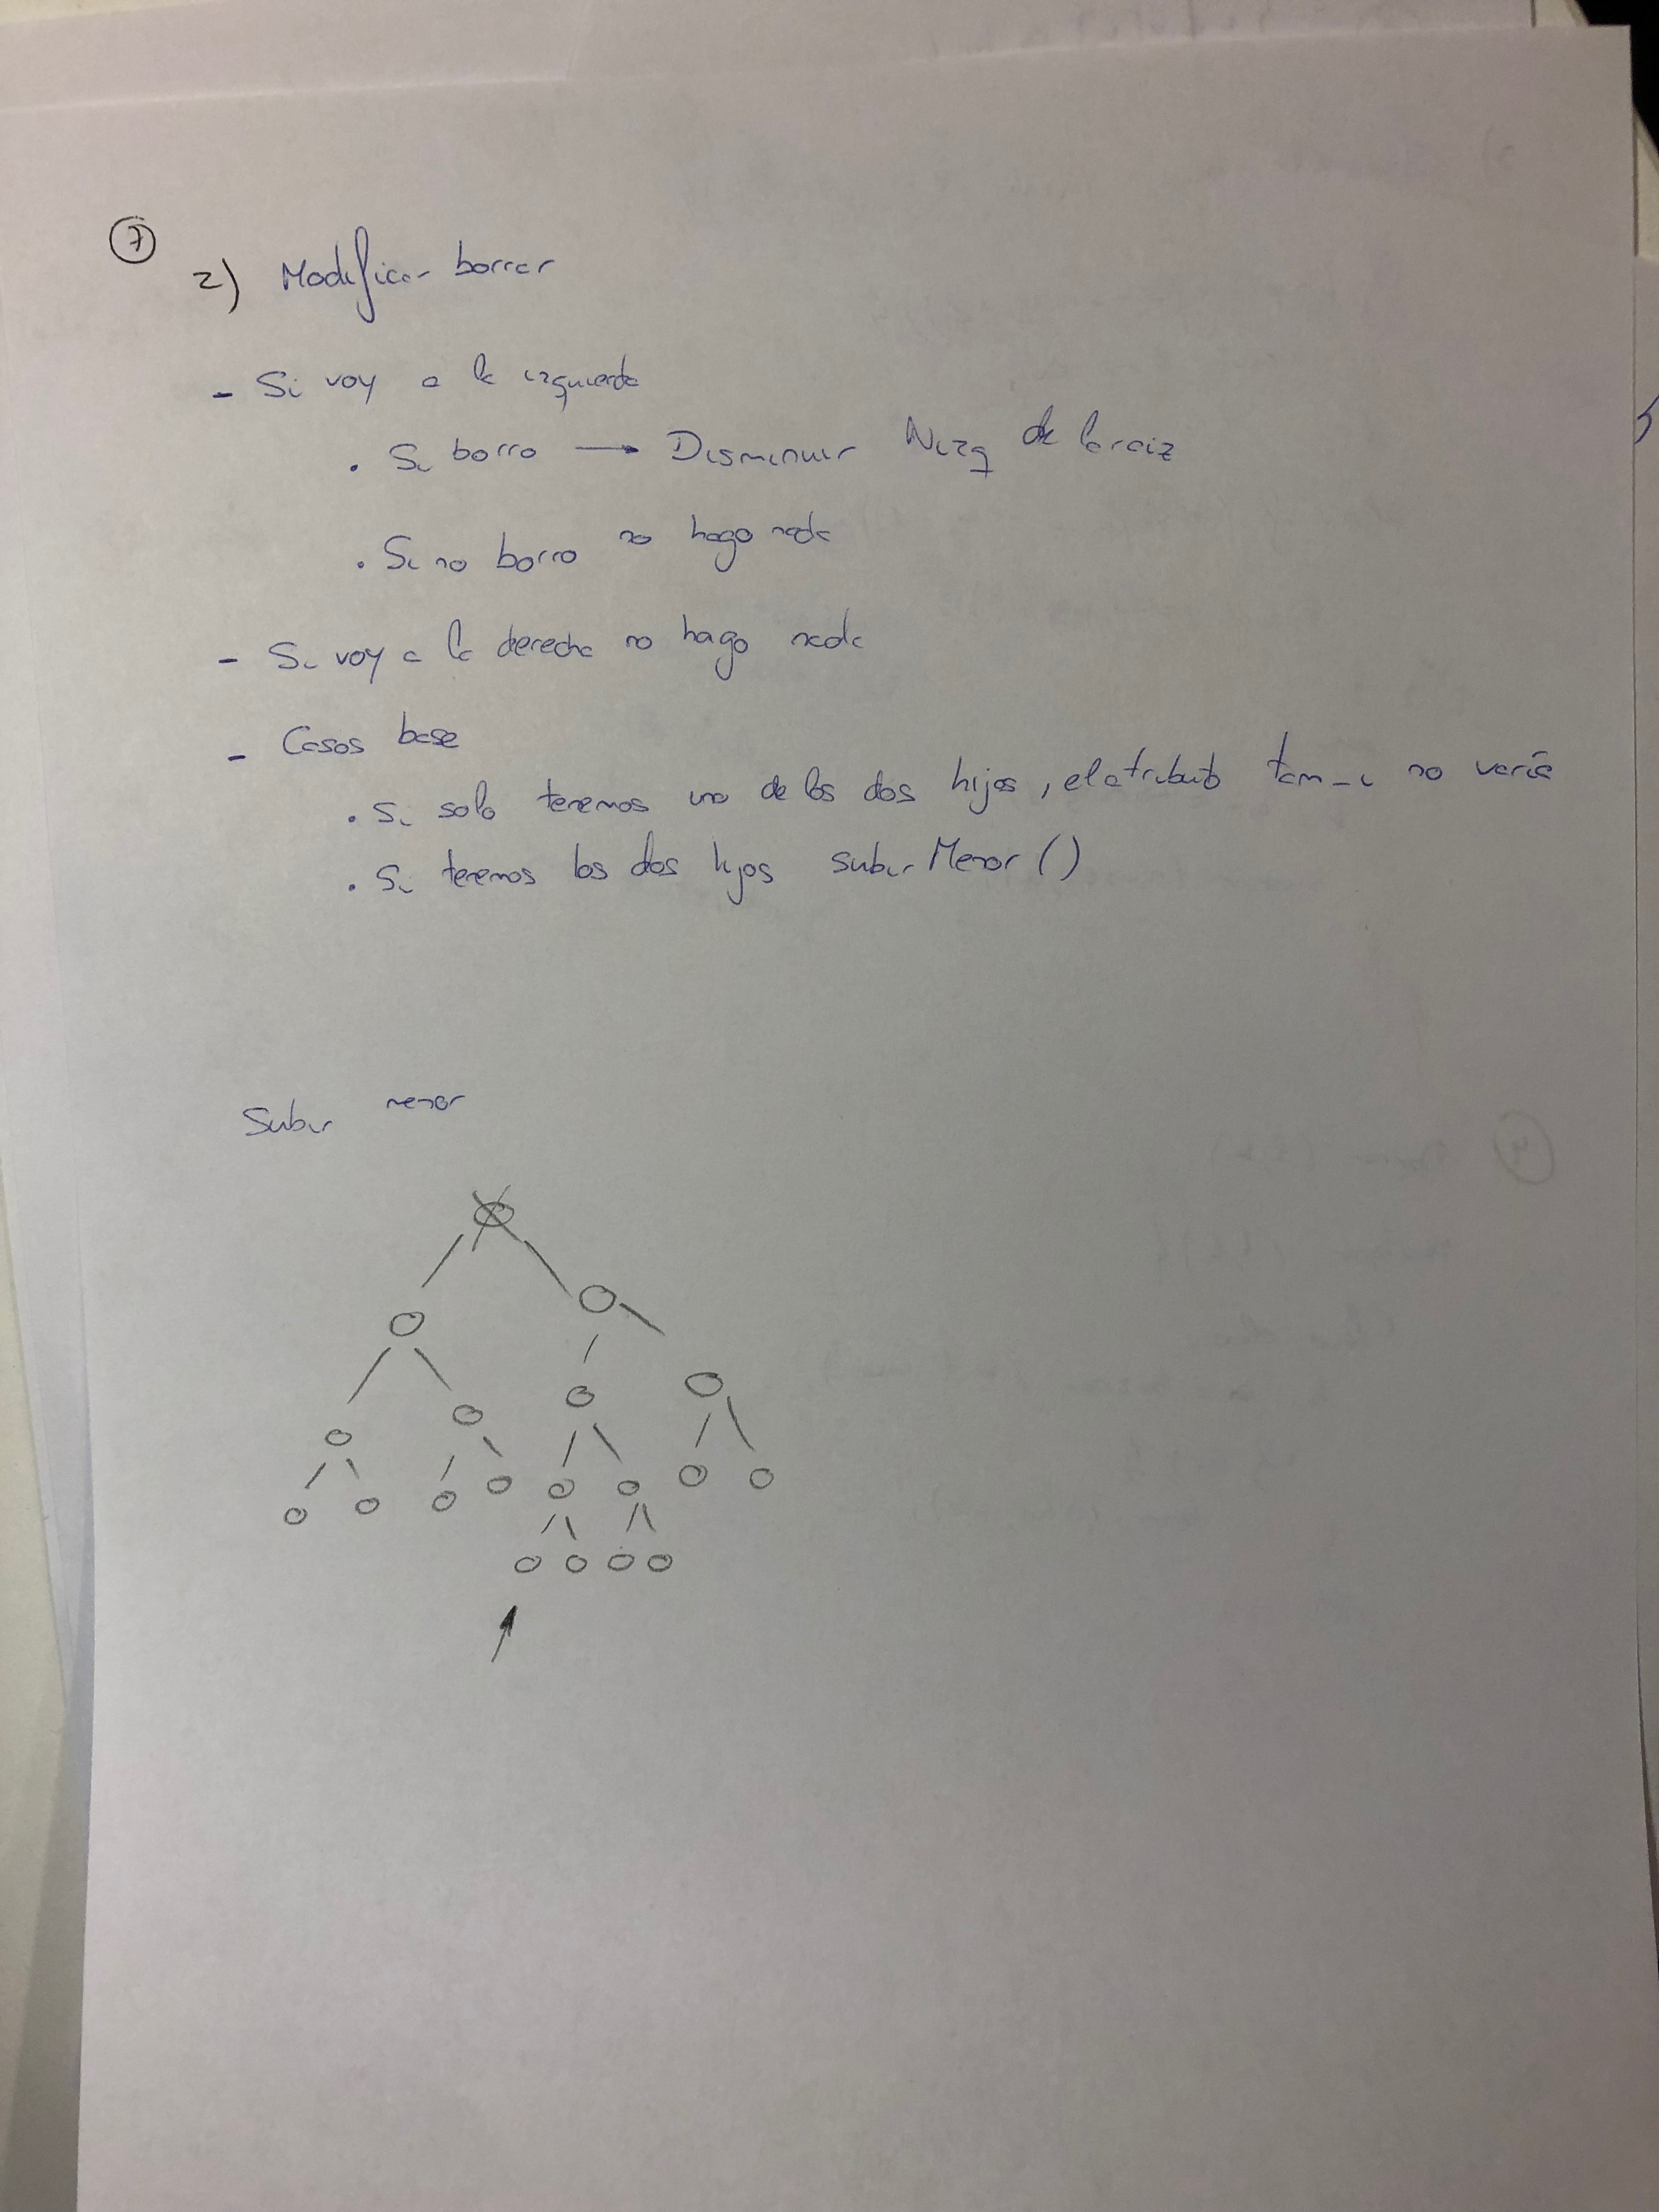 7
2) Modificar borrar
- Si voy a la izquierda
• Si borro → Disminuir Nizq de la raiz
• Si no borro no hago nada
- Si voy a la derecha no hago nada
- Casos base
• Si solo tenemos uno de los dos hijos, el atributo tam_i no varía
• Si tenemos los dos hijos subir Menor ()
Subir menor